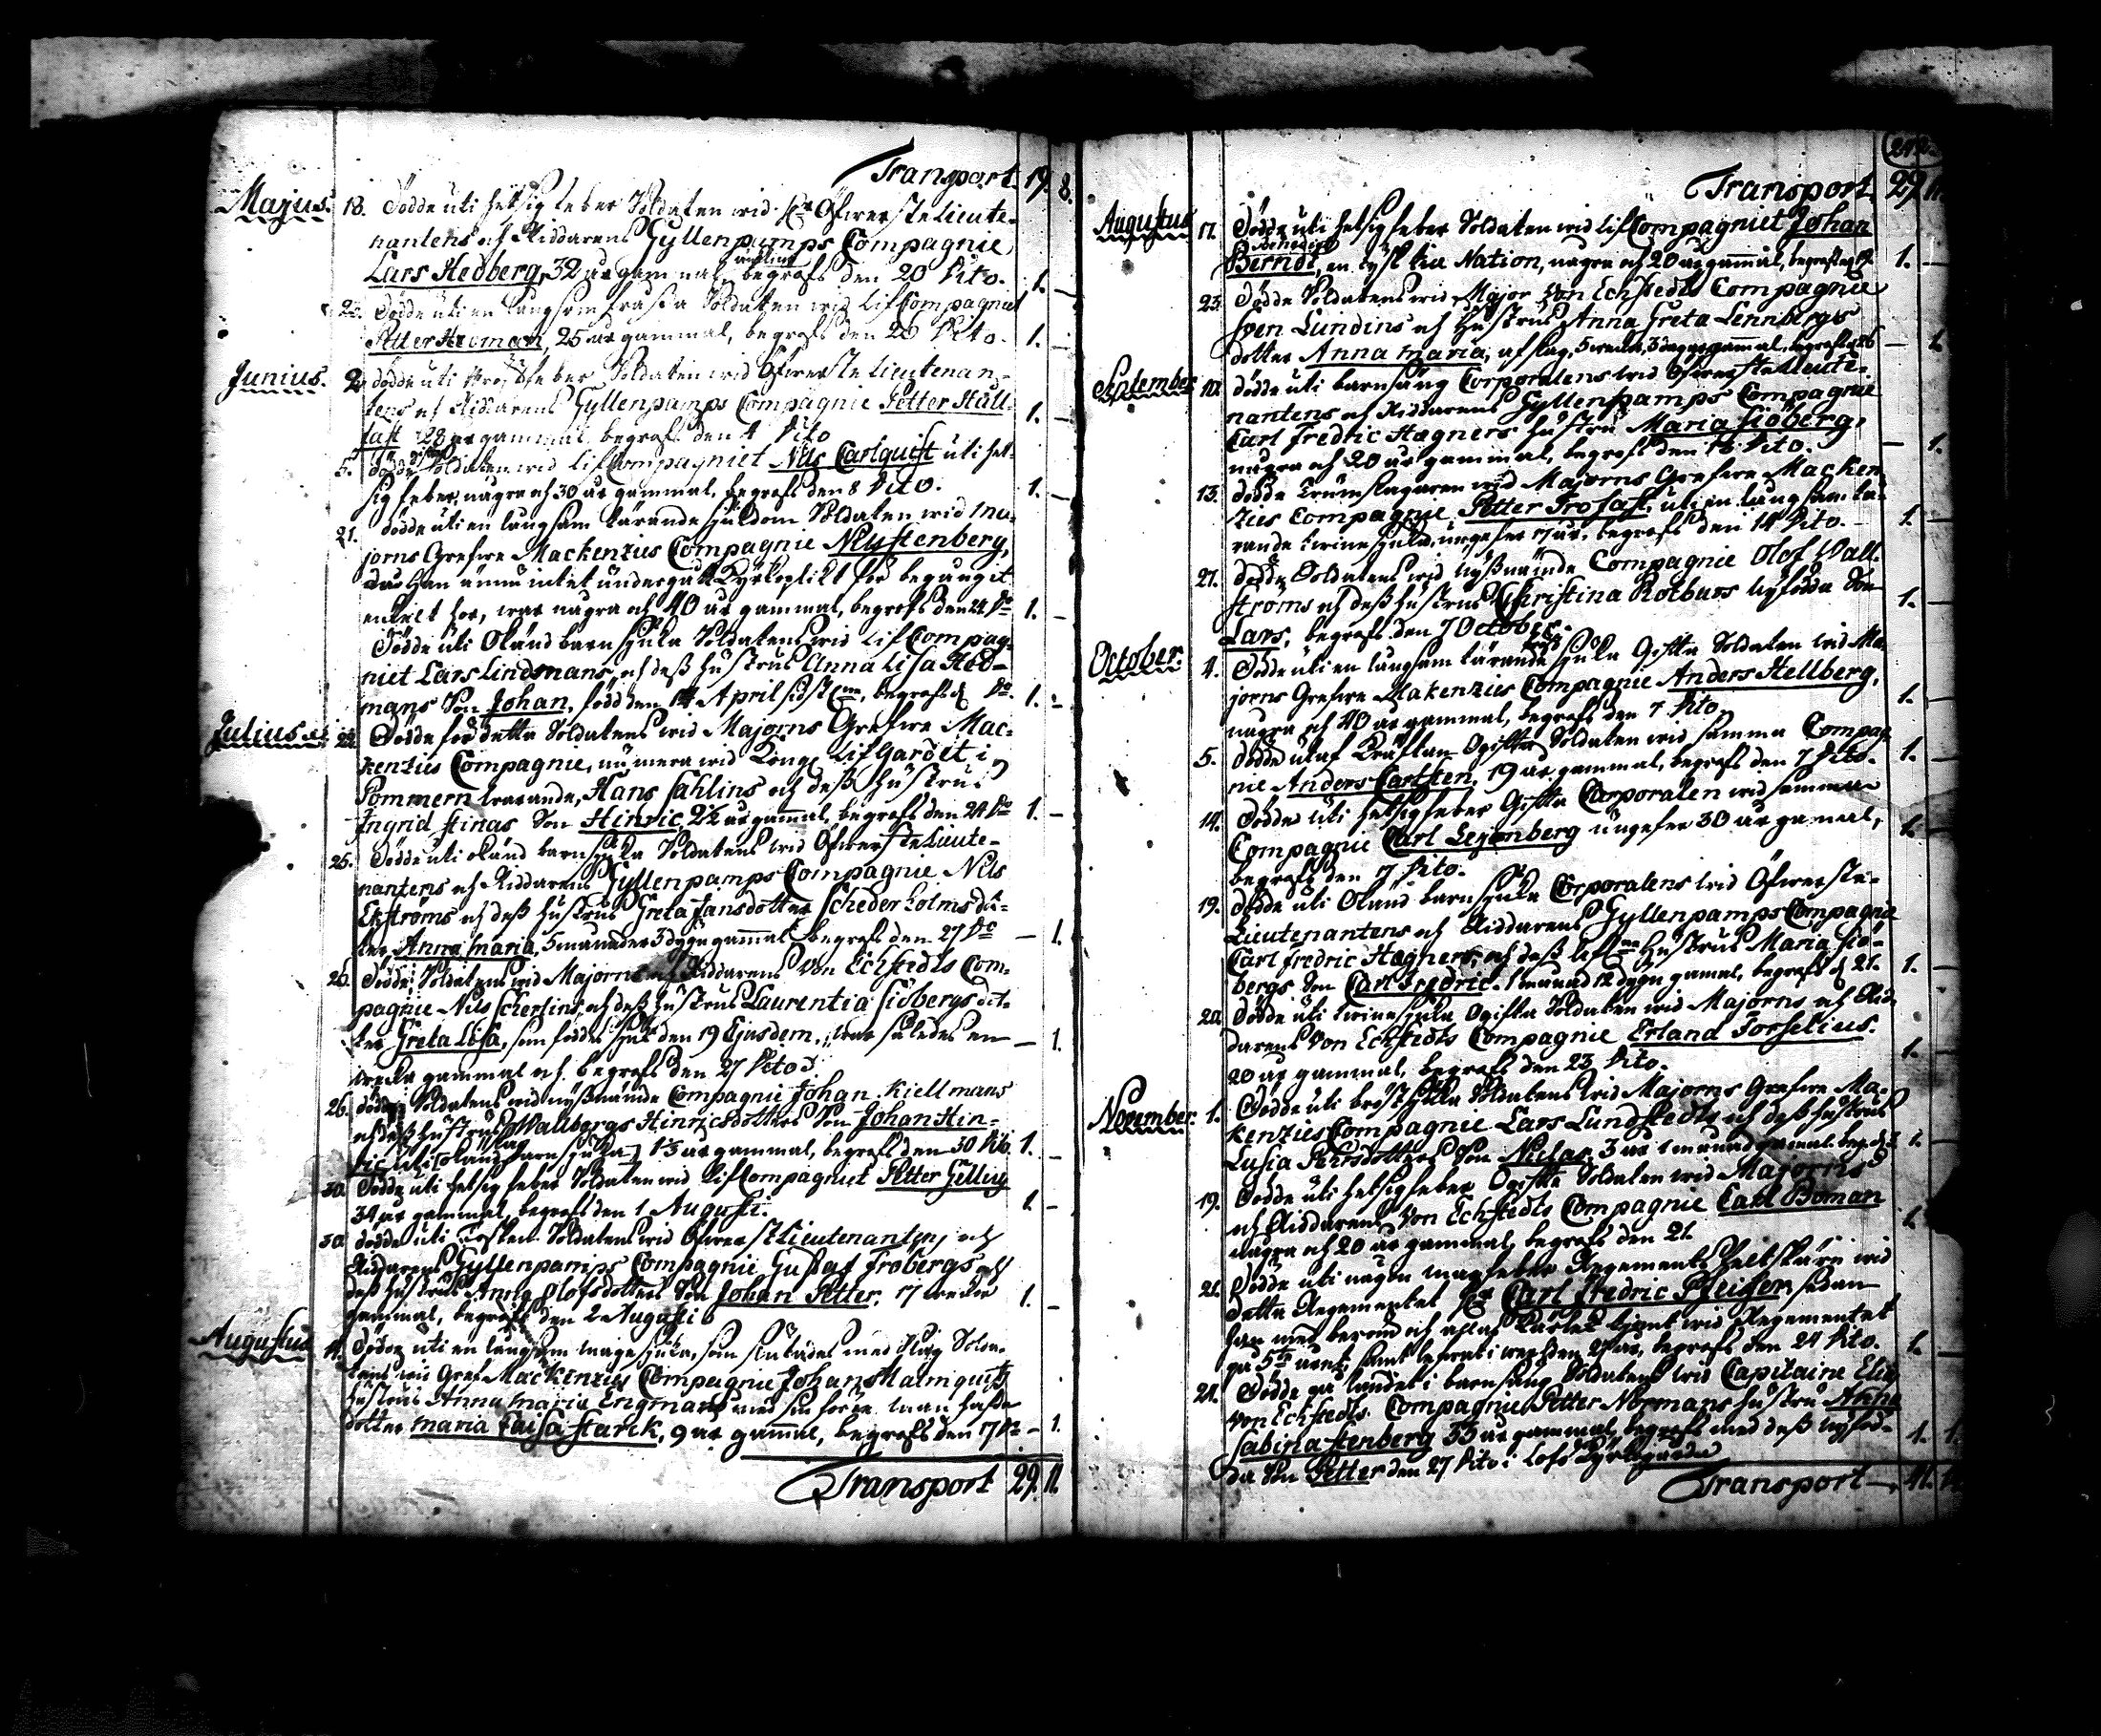 Transport. 19. 8.
Majus. 18. Dödde uti hetsig feber Soldaten wid Hr Öfwerste Lieute-
nantens och Riddarens Gyllenpamps Compagnie
Lars Hedberg, 32 år gammal, begrofs den 20 dito. 1. –
Dödde uti en långsam Soldaten wid Lif Compagniet
Petter Hroman, 25 år gammal, begrofs den 26 dito. 1. –
Junius. 2. dödde uti feber Soldaten wid Öfwerste Lieutenan-
tens och Riddarens Gyllenpamps Compagnie Petter Ståll-
fast 28 år gammal, begrofs den 4 dito 1. –
5. dödde Soldaten wid Lif Compagniet Nils Carlquist uti het-
sig feber, några och 30 år gammal, begrofs den 8 dito. 1. –
21. dödde uti en långsam tärande sjukdom Soldaten wid Ma-
jorns Grefwe Mackenzies Compagnie Nils Stenberg,
har han ännu intet undergått Kyrkoplikt för begångit
enkelt hor, war några och 40 år gammal, begrofs den 24 do 1. –
Dödde uti Okänd barnsjuka Soldatens wid Lif Compag-
niet Lars Lindmans, och dess hustrus Anna Lisa Hed-
mans Son Johan, född den 14 April sidstl., begrofs d. do. 1. –
Julius. 22. Dödde för detta Soldatens wid Majorns Grefwe Mac-
kenzies Compagnie, nu mera wid Kongl Lif Gardet i
Pommern warande, Hans Sahlins och dess hustrus
Ingrid Stinas Son Hinric, 2½ år gammal, begrofs den 24 do 1. –
25. Dödde uti okänd barnsjuka Soldatens wid Öfwerste Lieute-
nantens och Riddarens Gyllenpamps Compagnie Nils
Ekströms och dess hustrus Greta Jansdotter Schederholms dot-
ter Anna Maria, 5 månader 3 dygn gammal begrofs den 27 do – 1.
26. Dödde Soldatens wid Majorns och Riddarens Von Eckstedts Com-
pagnie Nils Scherlins, och dess hustrus Laurentia Siöbergs dot-
ter Greta Lisa, som föddes sjuk den 19 Ejusdem, war således en – 1.
wecka gammal och begrofs den 27 dito.
26. dödde Soldatens wid nyssnämde Compagnie Johan Kiellmans
och dess hustrus Wallbergs Hinricsdotters Son Johan Hin-
ric uti okänd barnsjuka, 1⅓ år gammal, begrofs den 30 dito. 1. –
30. Dödde uti hetsig feber Soldaten wid Lif Compagniet Petter Gelling
34 år gammal, begrofs den 1 Augusti. 1. –
30. dödde uti Soldatens wid Öfwerste Lieutenantens och
Riddarens Gyllenpamps Compagnie Gustaf Frobergs och
dess hustrus Anna Olofsdotters Son Johan Petter, 17 weckor 1. –
gammal, begrofs den 2 Augusti
Augustus 14. Dödde uti en långsam magsjuka, som slutades med slag Solda-
tens wid Gref Mackenzies Compagnie Johan Malmquists
hustrus Anna Maria Engmans med sin förra man hafda
dotter Maria Caisa Starck, 9 år gammal, begrofs den 17 do – 1.
Transport 29. 11.
Transport. 29. 11.
Augustus 17. Dödde uti hetsig feber Soldaten wid Lif Compagniet Johan
Berndt, en Tysk till Nation, några och 20 år gammal, begrofs 1. –
23. Dödde Soldatens wid Major Von Eckstedts Compagnie
Sven Lundins och hustrus Anna Greta Lennbergs
dotter Anna Maria, af slag, 5 weckor, 3 dagar gammal, begrofs d. 26 – 1.
September 10. dödde uti barnsäng Corporalens wid Öfwerste Lieute-
nantens och Riddarens Gyllenpamps Compagnie
Carl Fredric Hægners hustru Maria Siöberg,
några och 20 år gammal, begrofs den 13 dito. – 1.
13. dödde Trumslagaren wid Majorns Grefwe Macken-
zies Compagnie Petter Trofast, uti en långsam tä-
rande twinsjuka, ungefer 17 år, begrofs den 14 dito. 1. –
27. dödde Soldatens wid nyssnämde Compagnie Olof Wall-
ströms och dess hustrus Christina Rotburs nyfödda Son
Lars, begrofs den 7 October. 1. –
October. 4. Dödde uti en långsam tärande sjuka Gifta Soldaten wid Ma-
jorns Grefwe Makenzies Compagnie Anders Hellberg,
några och 40 år gammal, begrofs den 7 dito. 1. –
5. dödde utaf Kräftan Ogifta Soldaten wid samma Compag-
nie Anders Carlsten, 19 år gammal, begrofs den 7 dito. 1. –
14. Dödde uti hetsig feber Gifta Corporalen wid samma
Compagnie Carl Legonberg ungefer 30 år gamal, 1. –
begrofs den 17 dito.
19. Dödde uti Okänd barnsjuka Corporalens wid Öfwerste-
Lieutenantens och Riddarens Gyllenpamps Compagnie
Carl Fredric Hægners, och dess hustrus Maria Siö-
bergs Son Carl Fredric, 1 månad 12 dygn gamal, begrofs d. 21. 1. –
20. Dödde uti twinsjuka Ogifta Soldaten wid Majorns och Rid-
darens Von Eckstedts Compagnie Erland Forselius.
20 år gammal, begrofs den 23 dito. 1. –
November. 1. Dödde uti bröstsjuka Soldatens wid Majorns Grefwe Ma-
kenzies Compagnie Lars Lundstedts och dess hustrus
Lusia Pehrsdotters Son Niclas, 3 år 1 månad gammal beg. d. 3. 1. –
19. Dödde uti hetsig feber Ogifta Soldaten wid Majorns
och Riddarens Von Eckstedts Compagnie Carl Boman
några och 20 år gammal, begrofs den 21. 1.
21. Dödde uti någon magfeber Regements Feltskären wid
detta Regementet Hr Carl Fredric Pfeiffer, sedan
han med beröm och allas kärlek tjent wid Regementet
på 5te året, samt lefwat i werlden 27 år, begrofs den 24 dito. 1. –
21. Dödde på landet i barnsäng Soldatens wid Capitaine Elia
Von Eckstedts Compagnie Petter Normans hustru Anna
Sabina Stenberg 33 år gammal, begrofs med dess nyföd-
da Son Petter den 27 dito i Lofö Kyrkogård 1. 1.
Transport 41.